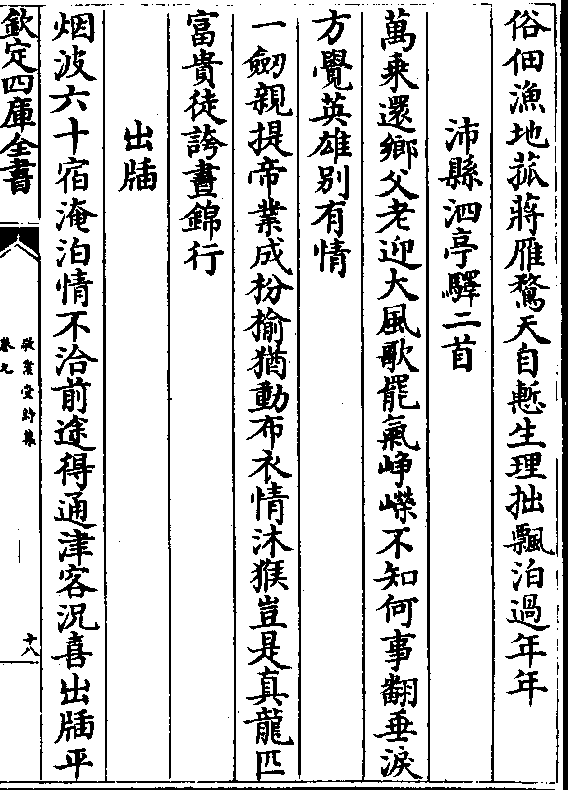 俗佃漁地菰蔣雁鶩天自慙生理拙飄泊過年年
沛縣泗亭驛二首
萬乘還鄉父老迎大風歌罷氣崢嶸不知何事翻垂淚
方覺英雄別有情
一劒親提帝業成枌榆猶動布衣情沐猴豈是真龍匹
富貴徒誇晝錦行
出牐
烟波六十宿淹泊情不洽前途得通津客况喜出牐平
欽定四庫全書
敬業堂詩集
卷九
十八